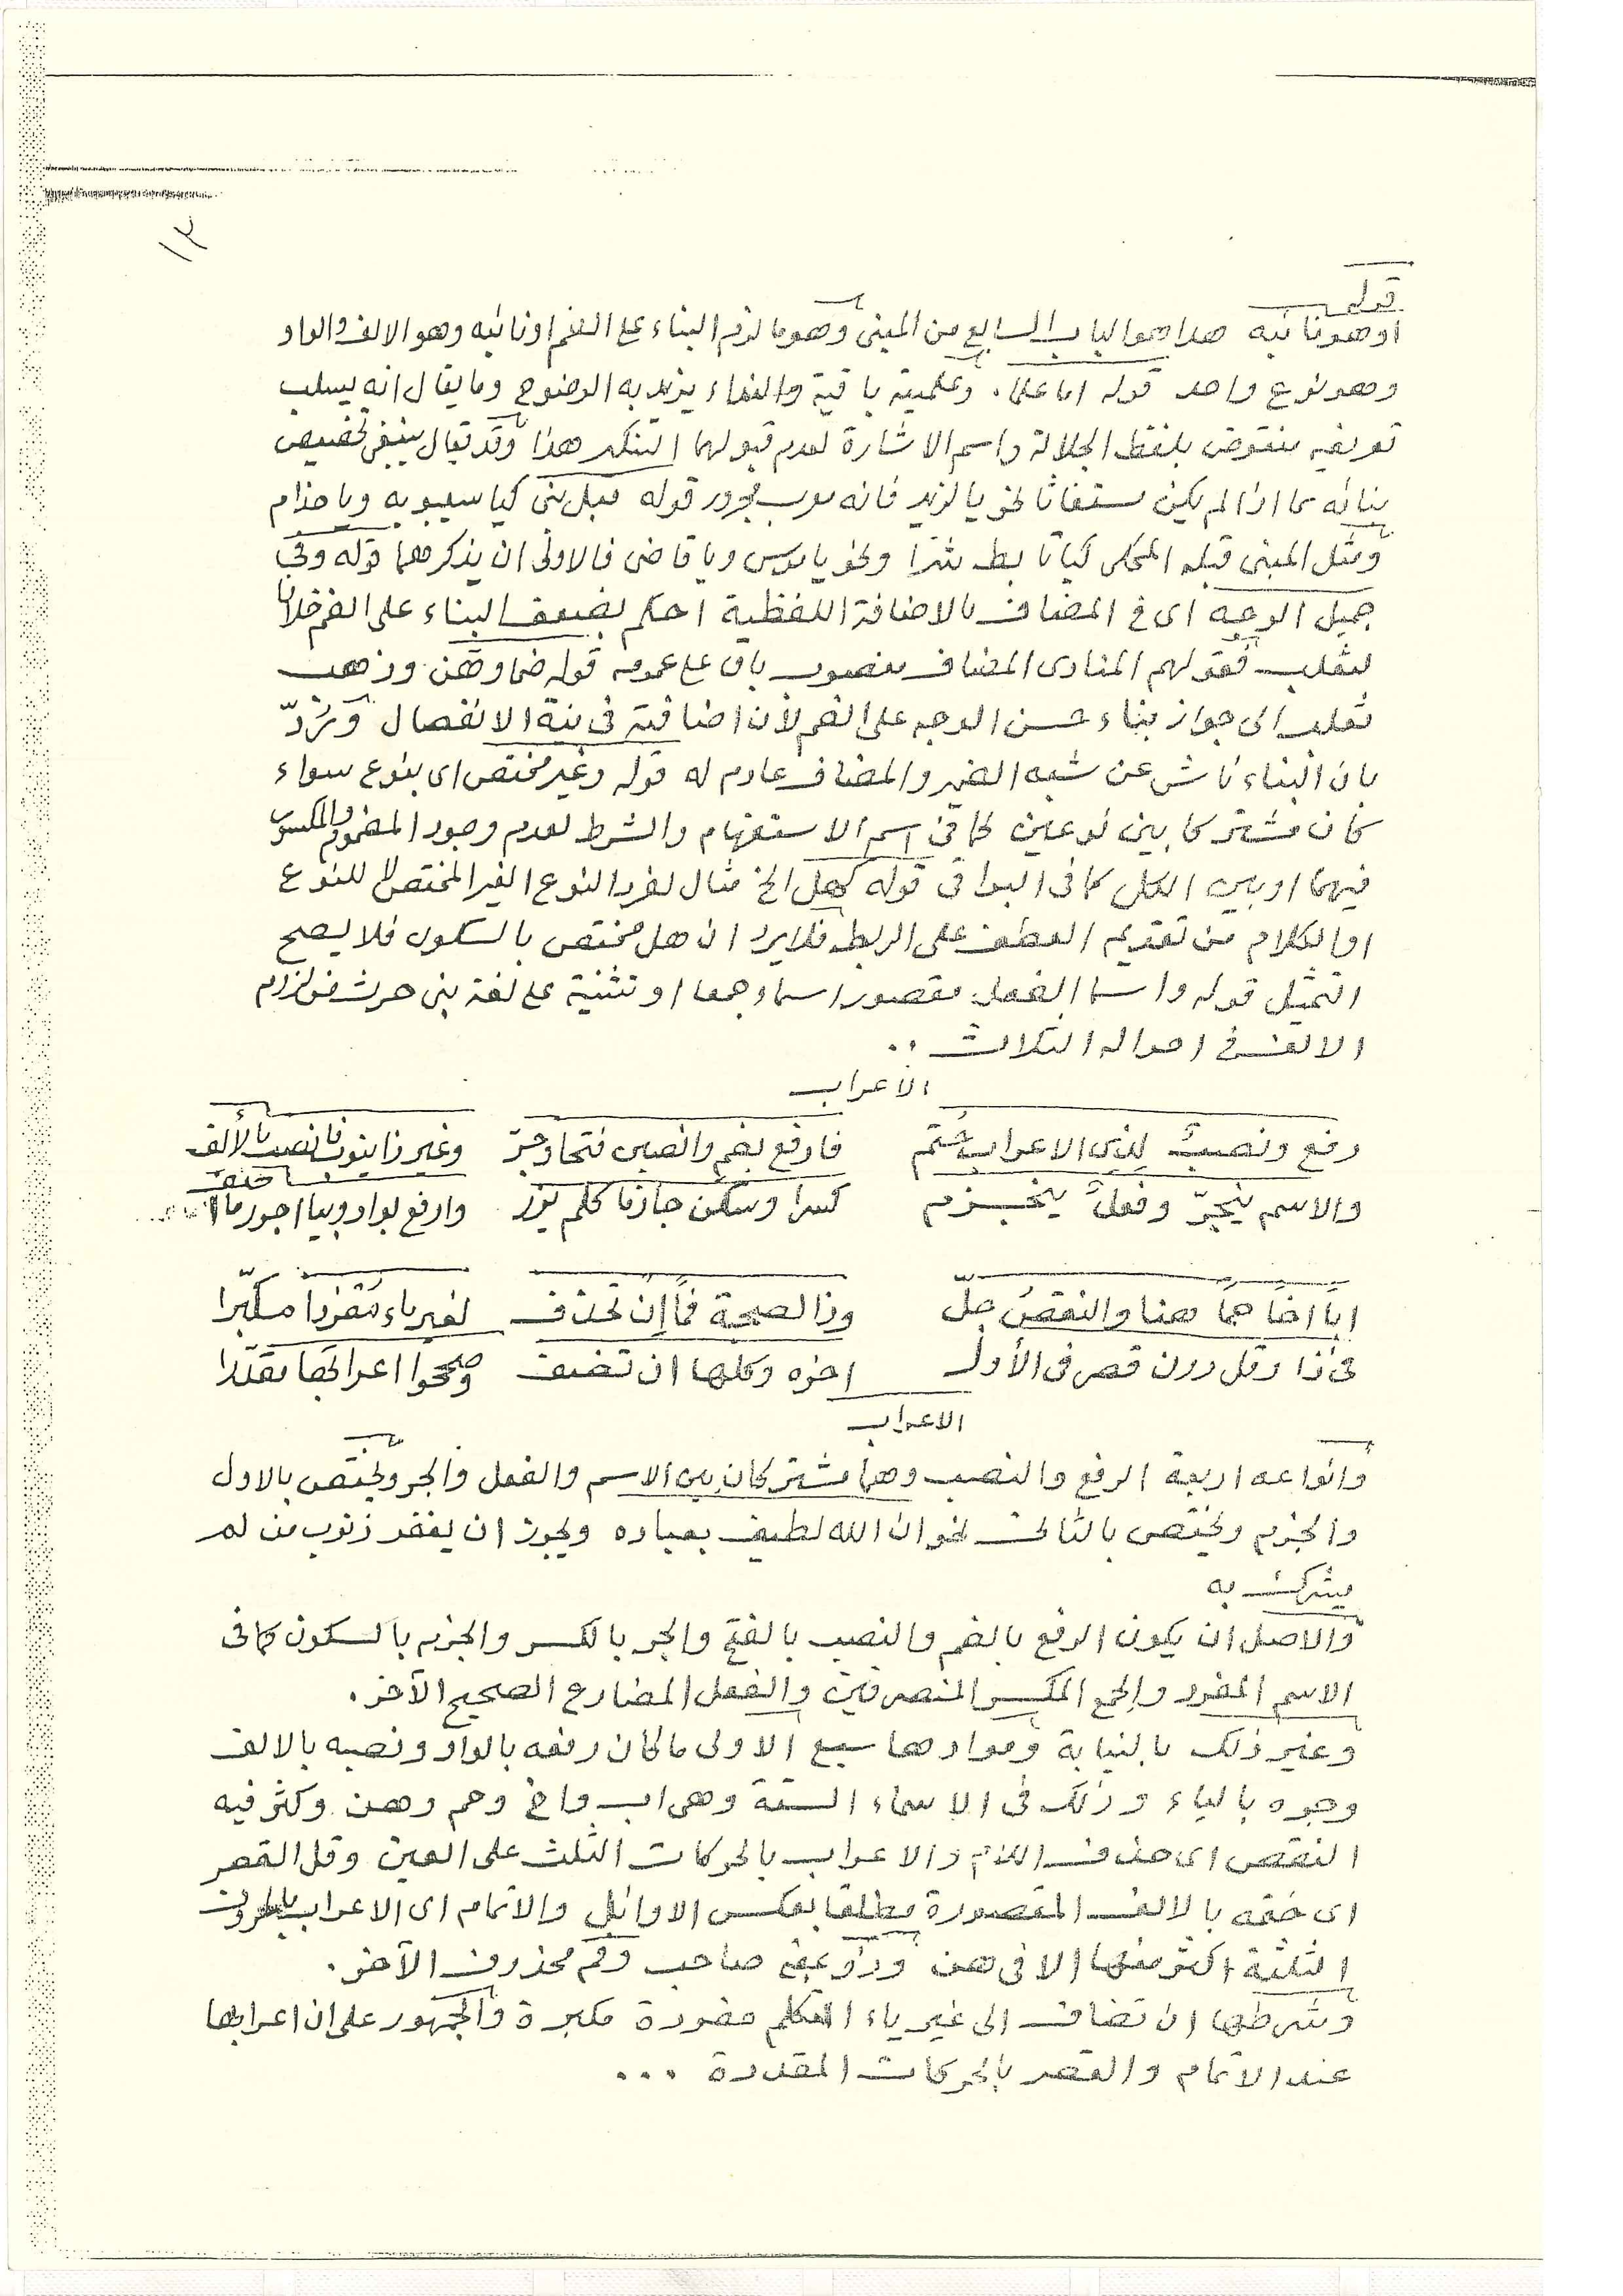 ١٣
قوله
او هو نائبه هذا هو الباب السابع من المبنى وهو ما لزم البناء على الضم او نائبه وهو الالف والواو
وهو نوع واحد قوله اما علما. وعلميته باقية والنداء يزيد به الوضوح وما يقال انه يسلب
تعريفه منقوض بلفظ الجلالة واسم الاشارة لعدم قبولهما التنكير هذا وقد يقال ينبغى تخصيص
بنائه بما اذا لم يكن مستغاثا نحو يا لزيد فانه معرب مجرور قوله قبل بنى كيا سيبويه ويا حذام
ومثل المبنى قبله المحكى كيا تابط شرا ونحو يا موسى ويا قاضى فالاولى ان يذكرهما قوله وفى
جميل الوجه اى فى المضاف بالاضافة اللفظية احكم بضعف البناء على الضم خلافا
لثعلب فقولهم المنادى المضاف منصوب باق على عمومه قوله ضما وهن وذهب
ثعلب الى جواز بناء حسن الوجه على الضم لأن اضافته فى نية الانفصال وَرُدّ
بان البناء ناش عن شبه الضمير والمضاف عادم له قوله وغير مختص اى بنوع سواء
كان مشتركا بين نوعين كما فى اسم الاستفهام والشرط لعدم وجود المضموم والمكسور
فيهما او بين الكل كما فى البواقى قوله كهل الخ مثال لفرد النوع الغير المختص لا للنوع
او الكلام من تقديم العطف على الربط فلا يرد ان هل مختص بالسكون فلا يصح
التمثيل قوله واسما الفعل مقصور اسماء جمعا او تثنية على لغة بنى حرث من لزوم
الالف فى احواله الثلاث ..
الاعراب
رفع ونصبٌ لِذى الاعراب عُمّم فارفع بضم وانصبن فتحا وجرّ وغير ذا ينوب فانصب بالألف
والاسم ينجرّ وفعلٌ ينجزم كسرا وسكّن جازما كلم يزر وارفع بواو وبيا اجرر ما
اباً اخاً حماً هنا والنقصُ جلّ وذا لصحبة فماً إن تحذف لغير ياء مُفردا مكبّرا
فى ذا وقل دون قصر فى الأول اخره وكلها ان تضف وصححوا اعرابها مقدّرا
الاعراب
وانواعه اربعة الرفع والنصب وهما مشتركان بين الاسم والفعل والجر ويختص بالاول
والجزم ويختص بالثانى نحو ان الله لطيف بعباده ويجوز ان يغفر ذنوب من لم
يشرك به
والاصل ان يكون الرفع بالضم والنصب بالفتح والجر بالكسر والجزم بالسكون كما فى
الاسم المفرد والجمع المكسر المنصرفين والفعل المضارع الصحيح الآخر.
وغير ذلك بالنيابة وموادها سبع الاولى ما كان رفعه بالواو ونصبه بالالف
وجره بالياء وذلك فى الاسماء الستة وهى اب واخ وحم وهن وكثر فيه
النقص اى حذف اللام والاعراب بالحركات الثلث على العين وقل القصر
اى ختمه بالالف المقصورة مطلقا بعكس الاوائل والاتمام اى الاعراب بالحروف
الثلثة اكثر منهما الا فى هن وذو بمعنى صاحب وفم محذوف الآخر.
وشرطها ان تضاف الى غير ياء المتكلم مفردة مكبرة والجمهور على ان اعرابها
عند الاتمام والقصر بالحركات المقدرة ...